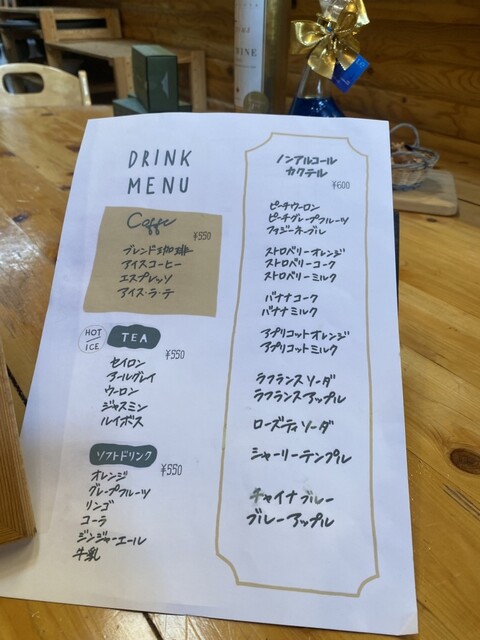 WINE
DRINK
MENU
Coffee
¥550
ブレンド珈琲
アイスコーヒー
エスプレッソ
アイス・ラ・テ
HOT
ICE
TEA
¥550
セイロン
アールグレイ
ウーロン
ジャスミン
ルイボス
ソフトドリンク
¥550
オレンジ
グレープフルーツ
リンゴ
コーラ
ジンジャーエール
牛乳
ノンアルコール
カクテル
¥600
ピーチウーロン
ピーチグレープフルーツ
ファジーネーブル
ストロベリーオレンジ
ストロベリーコーク
ストロベリーミルク
バナナコーク
バナナミルク
アプリコットオレンジ
アプリコットミルク
ラフランスソーダ
ラフランスアップル
ローズティソーダ
シャーリーテンプル
チャイナブルー
ブルーアップル